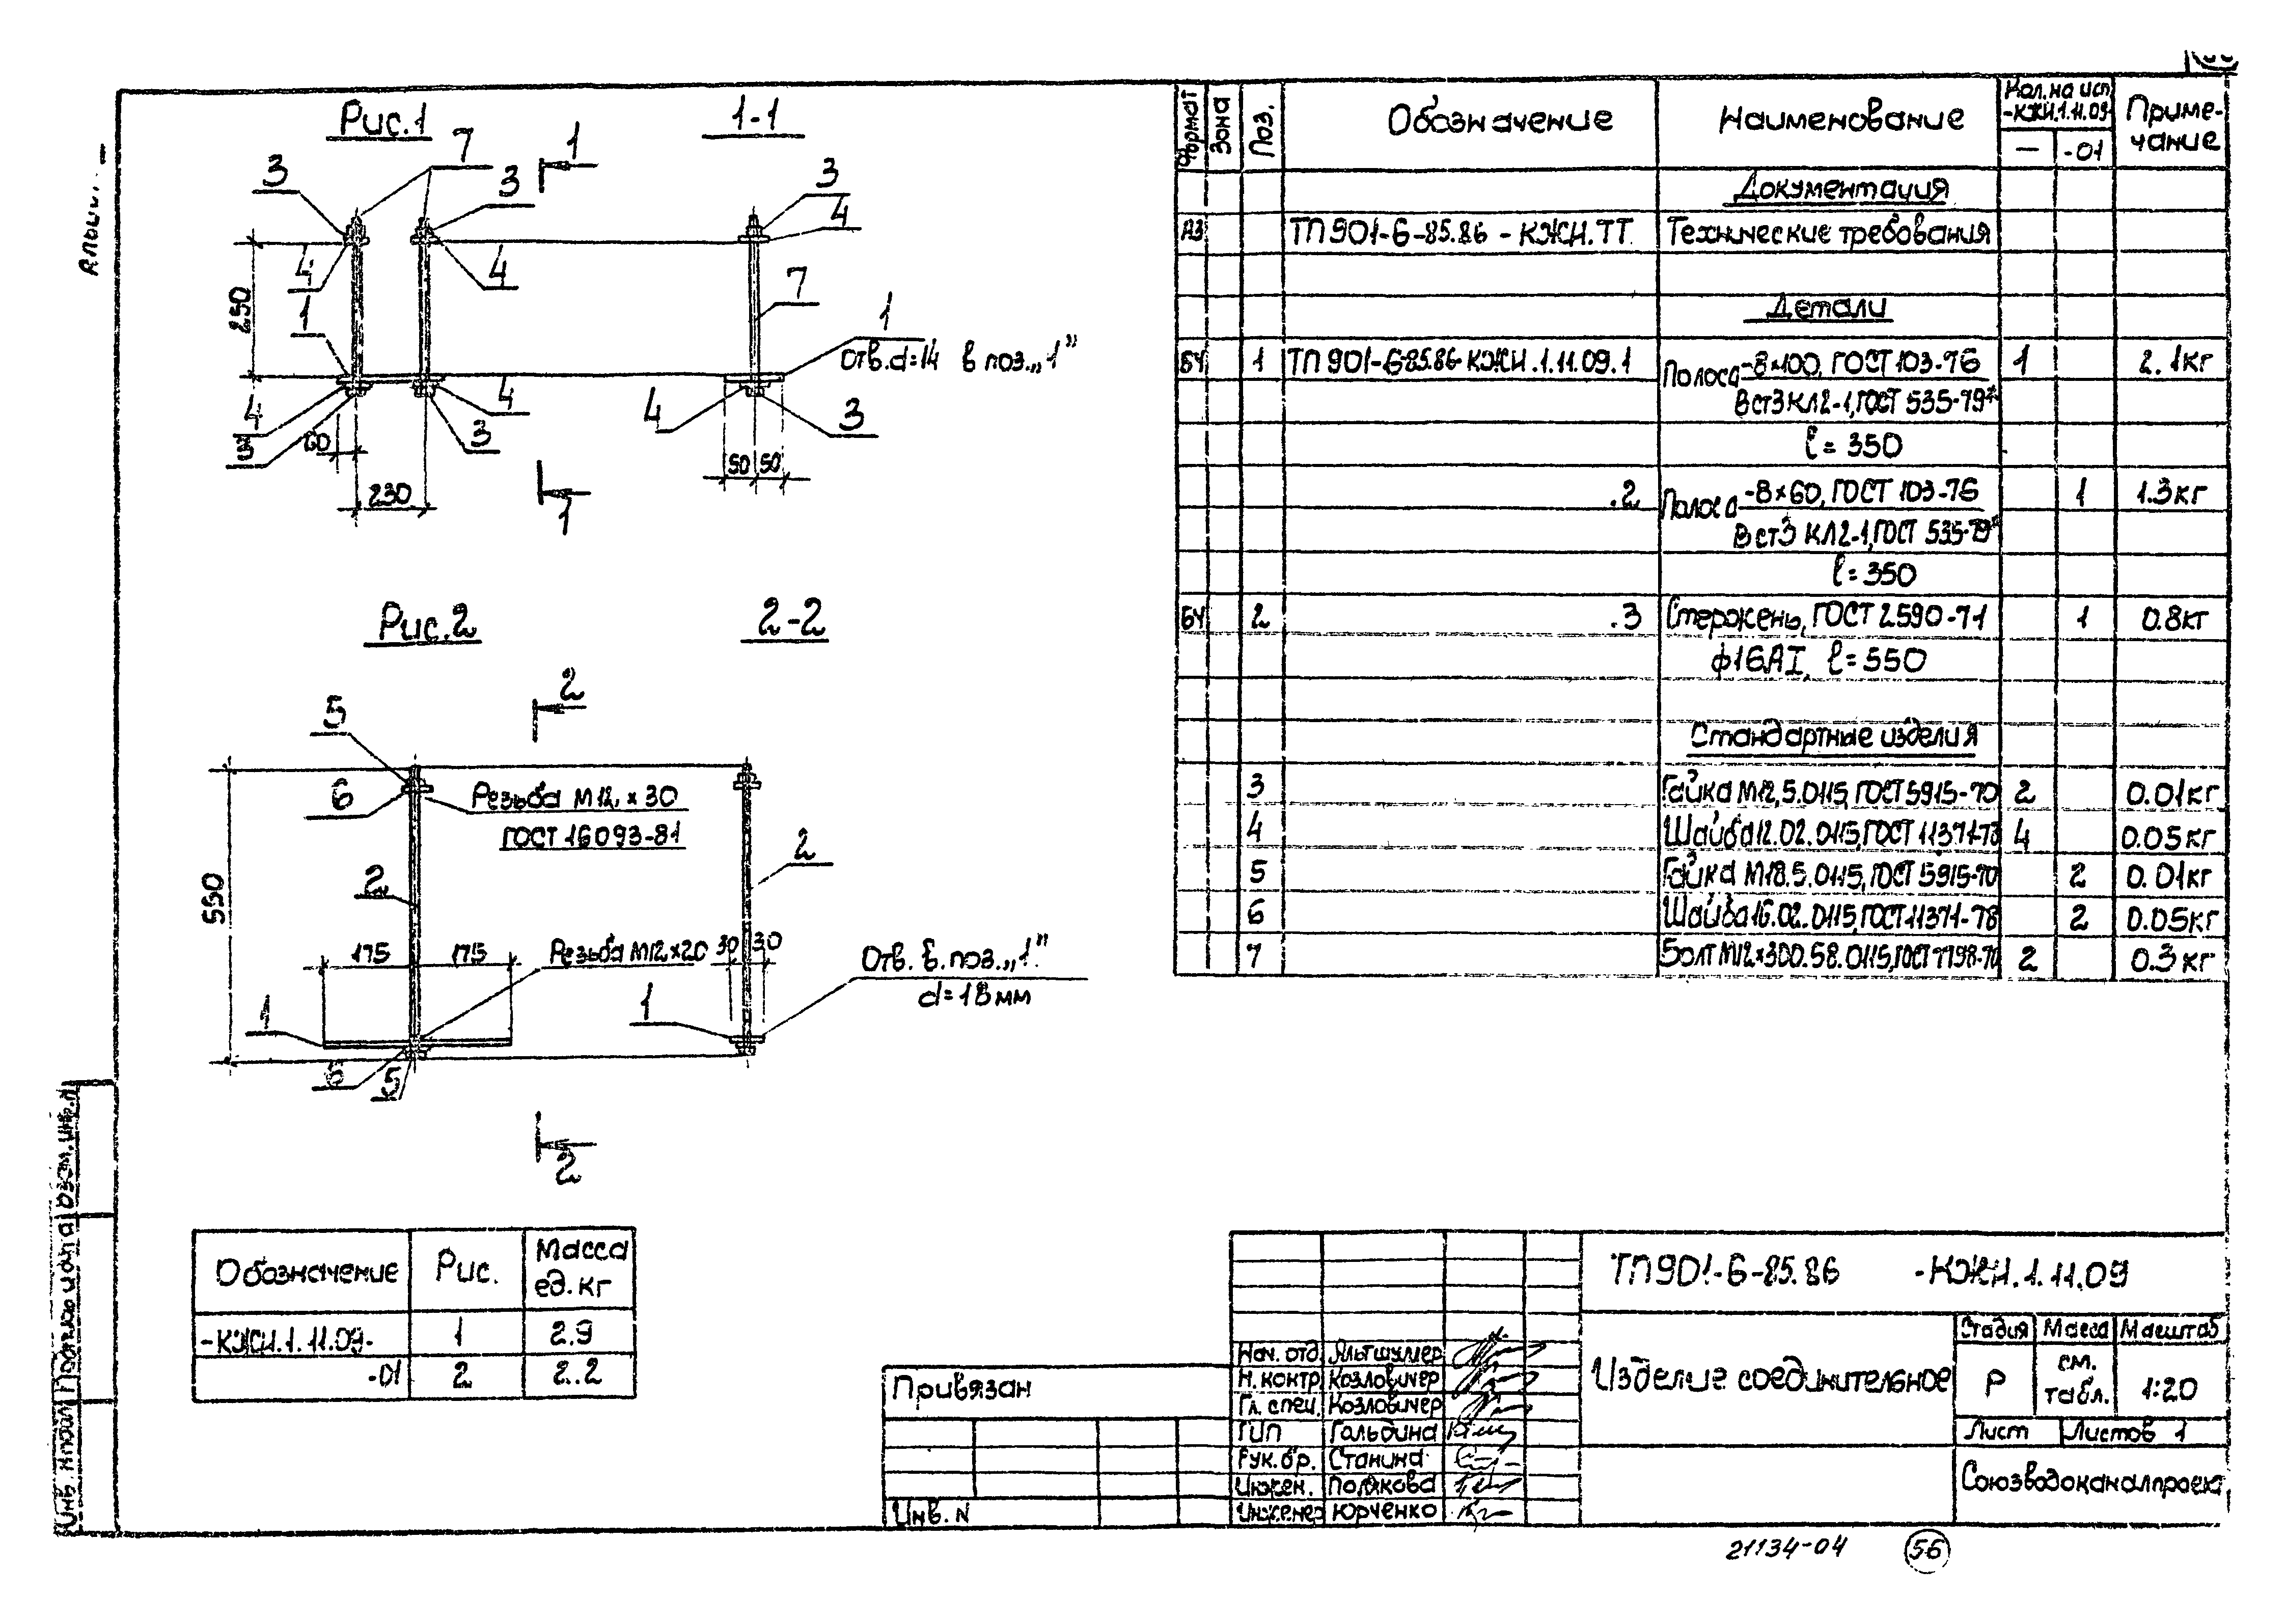 Рис.1
1-1
7
1
3
3
3
4
4
4
250
1
7
1
Отв. d=14 в поз. „1"
4
4
4
3
60
3
3
50 50
230
1
Рис.2
2-2
2
5
6
Резьба М12 × 30
ГОСТ 16093-81
2
2
550
175
175
Резьба М12×20
30
30
Отв. в. поз. „1"
d=18мм
1
1
6
5
2
Обозначение
Рис.
Масса
ед. кг
-КЖИ.1.11.09-
1
2.9
-01
2
2.2
Формат
Зона
Поз.
Обозначение
Наименование
Кол. на исп
-КЖИ.1.11.09-
—
-01
Приме-
чание
Документация
А3
ТП 901-6-85.86 - КЖИ.ТТ
Технические требования
Детали
БЧ
1
ТП 901-6-85.86-КЖИ.1.11.09.1
Полоса -8×100, ГОСТ 103-76
1
2.1кг
ВСт3 КП2-1, ГОСТ 535-79*
ℓ = 350
.2
Полоса -8×60, ГОСТ 103-76
1
1.3кг
ВСт3 КП2-1, ГОСТ 535-79*
ℓ = 350
БЧ
2
.3
Стержень, ГОСТ 2590-71
1
0.8кг
ф16АI, ℓ=550
Стандартные изделия
3
Гайка М12,5.0115, ГОСТ 5915-70
2
0.01кг
4
Шайба 12.02.0115, ГОСТ 11371-78
4
0.05кг
5
Гайка М18.5.0115, ГОСТ 5915-70
2
0.01кг
6
Шайба 16.02.0115, ГОСТ 11371-78
2
0.05кг
7
Болт М12×300.58.0115, ГОСТ 7798-70
2
0.3кг
ТП901-6-85.86 -КЖИ.1.11.09
Изделие соединительное
Стадия
Масса
Масштаб
Р
см.
табл.
1:20
Лист
Листов 1
Союзводоканалпроект
Нач. отд.
Альтшулер
Н. контр.
Козловичер
Гл. спец.
Козловичер
ГИП
Гальдина
Рук. бр.
Станина
Инжен.
Полякова
Инженер
Юрченко
Привязан
Инв. N
Взам. инв. N
Подпись и дата
Инв. N подл
21134-04
56